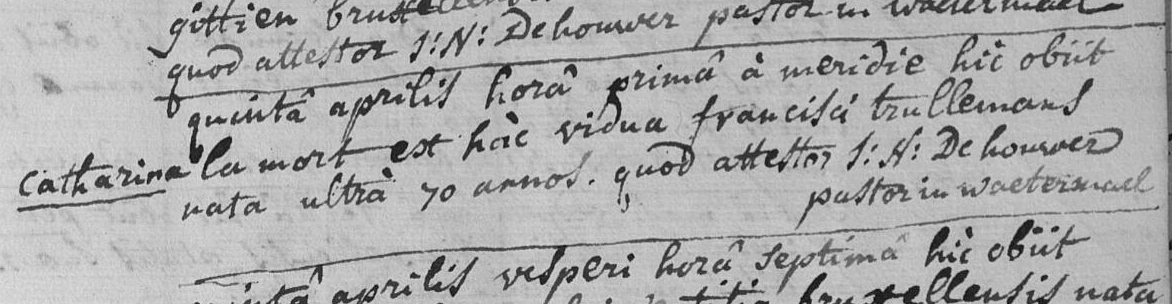 gittien bruxellen
quod attestor J: N: De houwer pastor in waetermael
quintâ aprilis horâ primâ à meridie hic obiit
Catharina la mort est hæc vidua francisci trullemans
nata ultrà 70 annos. quod attestor J: N: De houwer
pastor in waetermael
aprilis vesperi horâ septimâ hic obiit
bruxellensis nata